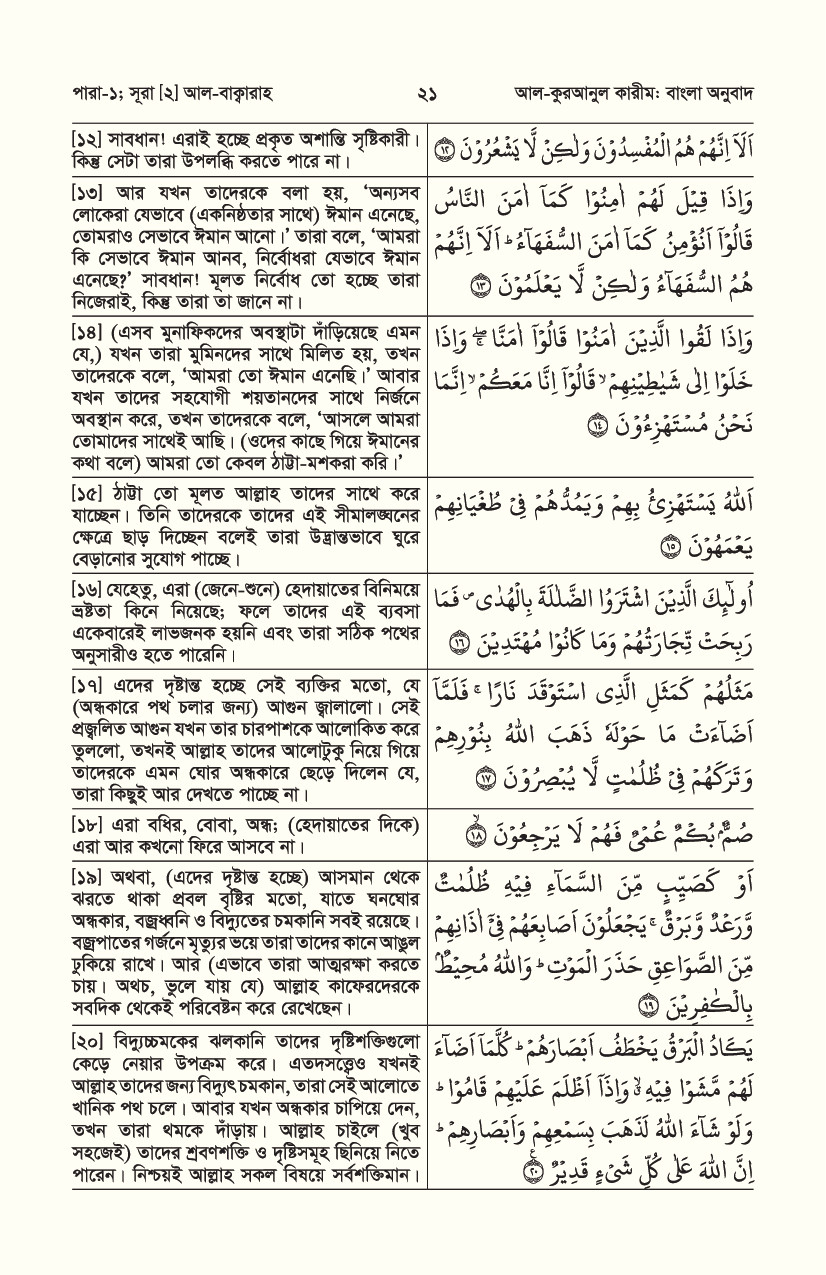 পারা-১; সূরা [২] আল-বাক্বারাহ
২১
আল-কুরআনুল কারীম: বাংলা অনুবাদ
[১২] সাবধান! এরাই হচ্ছে প্রকৃত অশান্তি সৃষ্টিকারী।
কিন্তু সেটা তারা উপলব্ধি করতে পারে না।
اَلَاۤ اِنَّهُمْ هُمُ الْمُفْسِدُوْنَ وَلٰكِنْ لَّا يَشْعُرُوْنَ ﴿١٢﴾
[১৩] আর যখন তাদেরকে বলা হয়, ‘অন্যসব
লোকেরা যেভাবে (একনিষ্ঠতার সাথে) ঈমান এনেছে,
তোমরাও সেভাবে ঈমান আনো।’ তারা বলে, ‘আমরা
কি সেভাবে ঈমান আনব, নির্বোধরা যেভাবে ঈমান
এনেছে?’ সাবধান! মূলত নির্বোধ তো হচ্ছে তারা
নিজেরাই, কিন্তু তারা তা জানে না।
وَاِذَا قِيْلَ لَهُمْ اٰمِنُوْا كَمَاۤ اٰمَنَ النَّاسُ
قَالُوْۤا اَنُؤْمِنُ كَمَاۤ اٰمَنَ السُّفَهَآءُ ؕ اَلَاۤ اِنَّهُمْ
هُمُ السُّفَهَآءُ وَلٰكِنْ لَّا يَعْلَمُوْنَ ﴿١٣﴾
[১৪] (এসব মুনাফিকদের অবস্থাটা দাঁড়িয়েছে এমন
যে,) যখন তারা মুমিনদের সাথে মিলিত হয়, তখন
তাদেরকে বলে, ‘আমরা তো ঈমান এনেছি।’ আবার
যখন তাদের সহযোগী শয়তানদের সাথে নির্জনে
অবস্থান করে, তখন তাদেরকে বলে, ‘আসলে আমরা
তোমাদের সাথেই আছি। (ওদের কাছে গিয়ে ঈমানের
কথা বলে) আমরা তো কেবল ঠাট্টা-মশকরা করি।’
وَاِذَا لَقُوا الَّذِيْنَ اٰمَنُوْا قَالُوْۤا اٰمَنَّا ۚۖ وَاِذَا
خَلَوْا اِلٰى شَيٰطِيْنِهِمْ ۙ قَالُوْۤا اِنَّا مَعَكُمْ ۙ اِنَّمَا
نَحْنُ مُسْتَهْزِءُوْنَ ﴿١٤﴾
[১৫] ঠাট্টা তো মূলত আল্লাহ তাদের সাথে করে
যাচ্ছেন। তিনি তাদেরকে তাদের এই সীমালঙ্ঘনের
ক্ষেত্রে ছাড় দিচ্ছেন বলেই তারা উদ্ভ্রান্তভাবে ঘুরে
বেড়ানোর সুযোগ পাচ্ছে।
اَللّٰهُ يَسْتَهْزِئُ بِهِمْ وَيَمُدُّهُمْ فِىْ طُغْيَانِهِمْ
يَعْمَهُوْنَ ﴿١٥﴾
[১৬] যেহেতু, এরা (জেনে-শুনে) হেদায়াতের বিনিময়ে
ভ্রষ্টতা কিনে নিয়েছে; ফলে তাদের এই ব্যবসা
একেবারেই লাভজনক হয়নি এবং তারা সঠিক পথের
অনুসারীও হতে পারেনি।
اُولٰٓئِكَ الَّذِيْنَ اشْتَرَوُا الضَّلٰلَةَ بِالْهُدٰى ۪ فَمَا
رَبِحَتْ تِّجَارَتُهُمْ وَمَا كَانُوْا مُهْتَدِيْنَ ﴿١٦﴾
[১৭] এদের দৃষ্টান্ত হচ্ছে সেই ব্যক্তির মতো, যে
(অন্ধকারে পথ চলার জন্য) আগুন জ্বালালো। সেই
প্রজ্বলিত আগুন যখন তার চারপাশকে আলোকিত করে
তুললো, তখনই আল্লাহ তাদের আলোটুকু নিয়ে গিয়ে
তাদেরকে এমন ঘোর অন্ধকারে ছেড়ে দিলেন যে,
তারা কিছুই আর দেখতে পাচ্ছে না।
مَثَلُهُمْ كَمَثَلِ الَّذِى اسْتَوْقَدَ نَارًا ۚ فَلَمَّاۤ
اَضَآءَتْ مَا حَوْلَهٗ ذَهَبَ اللّٰهُ بِنُوْرِهِمْ
وَتَرَكَهُمْ فِىْ ظُلُمٰتٍ لَّا يُبْصِرُوْنَ ﴿١٧﴾
[১৮] এরা বধির, বোবা, অন্ধ; (হেদায়াতের দিকে)
এরা আর কখনো ফিরে আসবে না।
صُمٌّۢ بُكْمٌ عُمْىٌ فَهُمْ لَا يَرْجِعُوْنَ ۙ﴿١٨﴾
[১৯] অথবা, (এদের দৃষ্টান্ত হচ্ছে) আসমান থেকে
ঝরতে থাকা প্রবল বৃষ্টির মতো, যাতে ঘনঘোর
অন্ধকার, বজ্রধ্বনি ও বিদ্যুতের চমকানি সবই রয়েছে।
বজ্রপাতের গর্জনে মৃত্যুর ভয়ে তারা তাদের কানে আঙুল
ঢুকিয়ে রাখে। আর (এভাবে তারা আত্মরক্ষা করতে
চায়। অথচ, ভুলে যায় যে) আল্লাহ কাফেরদেরকে
সবদিক থেকেই পরিবেষ্টন করে রেখেছেন।
اَوْ كَصَيِّبٍ مِّنَ السَّمَآءِ فِيْهِ ظُلُمٰتٌ
وَّرَعْدٌ وَّبَرْقٌ ۚ يَجْعَلُوْنَ اَصَابِعَهُمْ فِىْۤ اٰذَانِهِمْ
مِّنَ الصَّوَاعِقِ حَذَرَ الْمَوْتِ ؕ وَاللّٰهُ مُحِيْطٌۢ
بِالْكٰفِرِيْنَ ﴿١٩﴾
[২০] বিদ্যুচ্চমকের ঝলকানি তাদের দৃষ্টিশক্তিগুলো
কেড়ে নেয়ার উপক্রম করে। এতদসত্ত্বেও যখনই
আল্লাহ তাদের জন্য বিদ্যুৎ চমকান, তারা সেই আলোতে
খানিক পথ চলে। আবার যখন অন্ধকার চাপিয়ে দেন,
তখন তারা থমকে দাঁড়ায়। আল্লাহ চাইলে (খুব
সহজেই) তাদের শ্রবণশক্তি ও দৃষ্টিসমূহ ছিনিয়ে নিতে
পারেন। নিশ্চয়ই আল্লাহ সকল বিষয়ে সর্বশক্তিমান।
يَكَادُ الْبَرْقُ يَخْطَفُ اَبْصَارَهُمْ ؕ كُلَّمَاۤ اَضَآءَ
لَهُمْ مَّشَوْا فِيْهِ ۙ وَاِذَاۤ اَظْلَمَ عَلَيْهِمْ قَامُوْا ؕ
وَلَوْ شَآءَ اللّٰهُ لَذَهَبَ بِسَمْعِهِمْ وَاَبْصَارِهِمْ ؕ
اِنَّ اللّٰهَ عَلٰى كُلِّ شَىْءٍ قَدِيْرٌ ﴿٢٠﴾